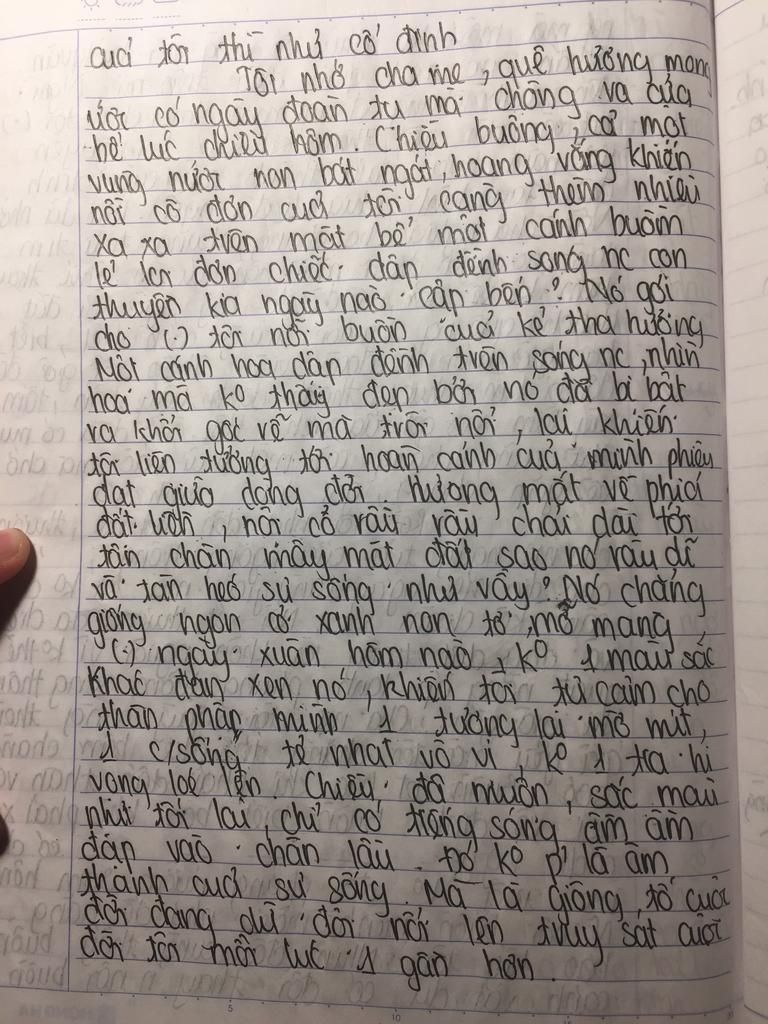 của tôi thì như cố định
Tôi nhớ cha mẹ, quê hương mong
ước có ngày đoàn tụ mà chẳng ra cửa
bể lúc chiều hôm. Chiều buông, cả một
vùng nước non bát ngát, hoang vắng khiến
nỗi cô đơn của tôi càng thêm nhiều
xa xa trên mặt bể một cánh buồm
lẻ loi đơn chiếc. dập dềnh sóng nc con
thuyền kia ngày nào cập bến? Nó gợi
cho (.) tôi nỗi buồn của kẻ tha hương
Một cánh hoa dập dềnh trên sóng nc, nhìn
hoa mà ko thấy đẹp bởi nó đã bị bật
ra khỏi gốc rễ mà trôi nổi, lại khiến
tôi liên tưởng tới hoàn cảnh của mình phiêu
dạt giữa dòng đời. Hướng mắt về phía
đất liền, nội cỏ rầu rầu chải dài tới
tận chân mây mặt đất sao nó rầu rĩ
và tàn héo sự sống như vậy? Nó chẳng
giống ngọn cỏ xanh non tơ, mỡ màng
(.) ngày xuân hôm nào, ko 1 màu sắc
khác đan xen nó, khiến tôi tủi cảm cho
thân phận mình 1 tương lai mờ mịt,
1 c/sống tẻ nhạt vô vị, ko 1 tia hi
vọng loé lên. Chiều đã muộn, sắc màu
phút tối lại, chỉ có tiếng sóng ầm ầm
đập vào chân lầu. Đó ko p' là âm
thanh của sự sống. Mà là giông, tố cuộc
đời đang dữ dội nổi lên truy sát cuộc
đời tôi mỗi lúc 1 gần hơn.